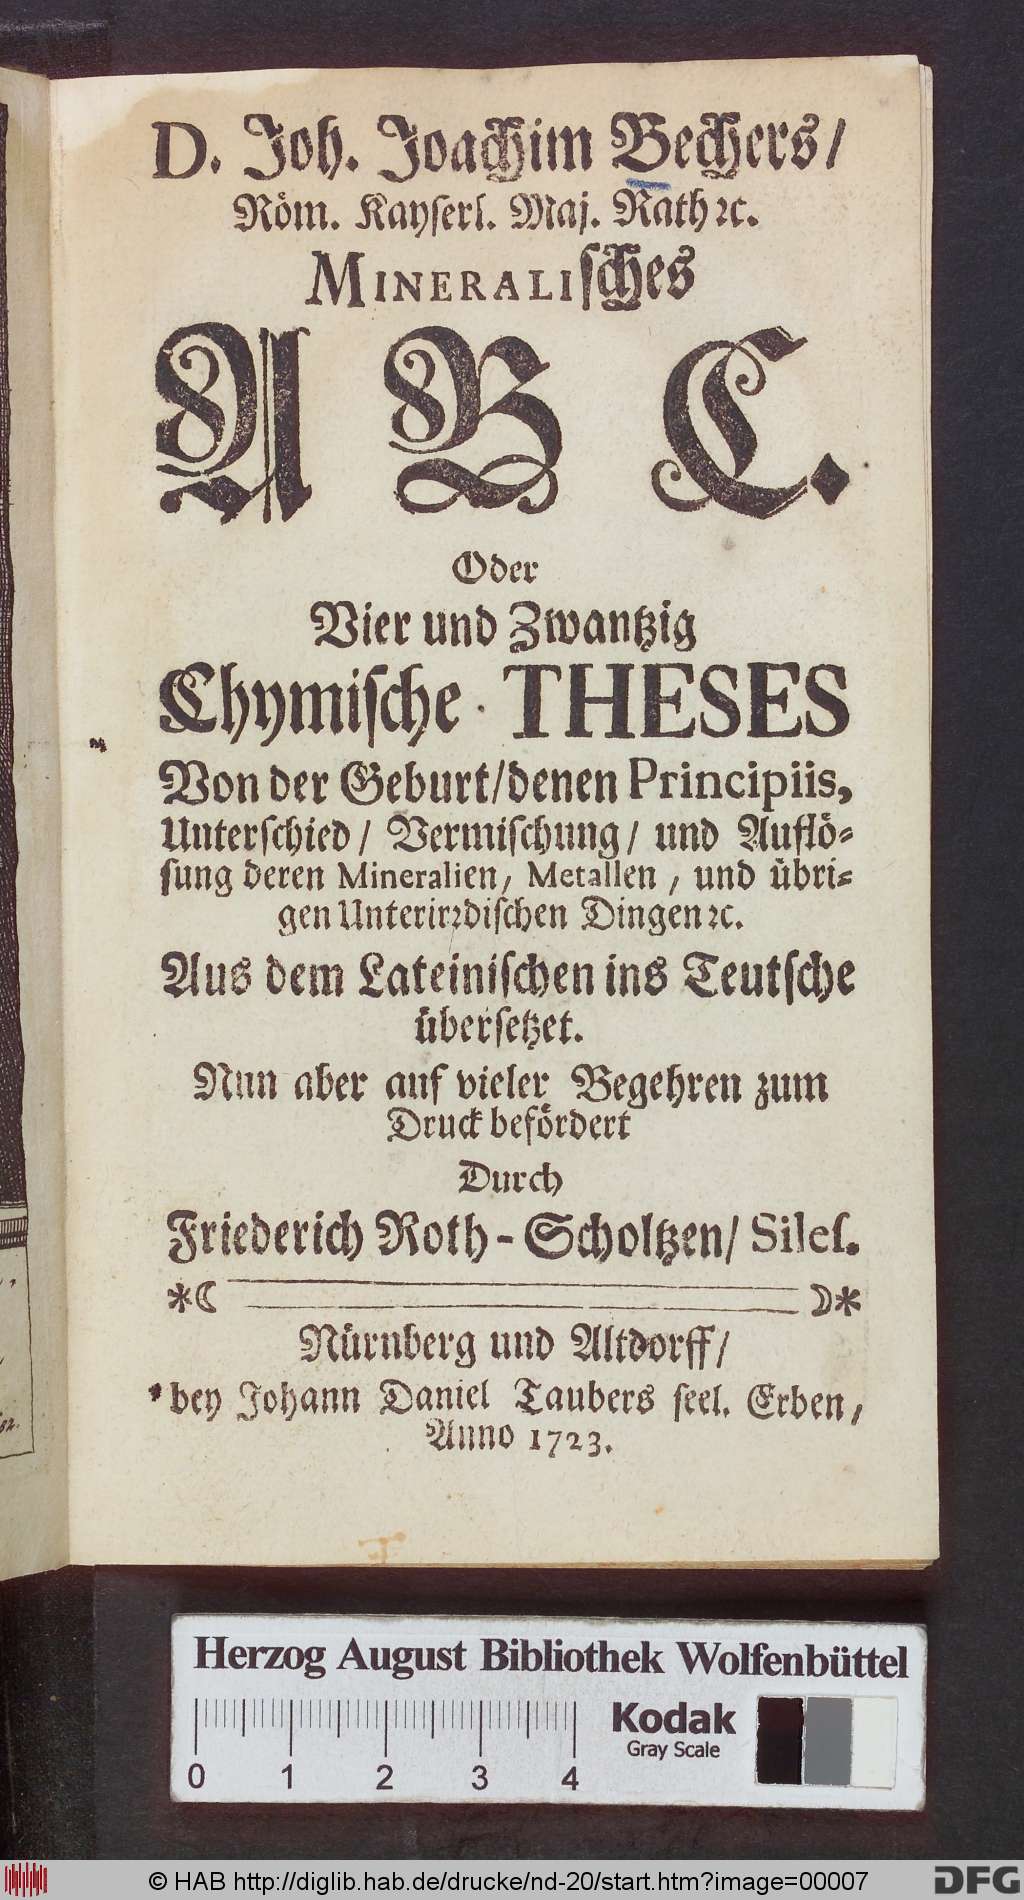 D. Joh. Joachim Bechers/
Röm. Kayserl. Maj. Rath ꝛc.
MINERALIsches
A B C.
Oder
Vier und Zwantzig
Chymische THESES
Von der Geburt/denen Principiis,
Unterschied/ Vermischung/ und Auflö=
sung deren Mineralien, Metallen, und übri=
gen Unterirꝛdischen Dingen ꝛc.
Aus dem Lateinischen ins Teutsche
übersetzet.
Nun aber auf vieler Begehren zum
Druck befördert
Durch
Friederich Roth-Scholtzen/ Siles.
Nürnberg und Altdorff/
bey Johann Daniel Taubers seel. Erben,
Anno 1723.
Herzog August Bibliothek Wolfenbüttel
Kodak
Gray Scale
0 1 2 3 4
© HAB http://diglib.hab.de/drucke/nd-20/start.htm?image=00007
DFG